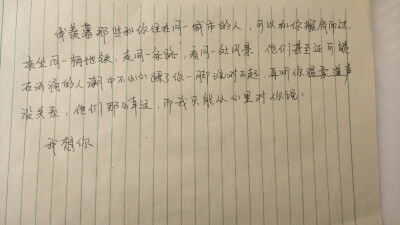 我羡慕那些和你住在同一城市的人，可以和你擦肩而过，
乘坐同一辆地铁，走同一条路，看同一处风景，他们甚至还可能
在汹涌的人潮中不小心踩了你一脚说对不起，再听你温柔道声
没关系，他们那么幸运，而我只能从心里对你说：
我想你